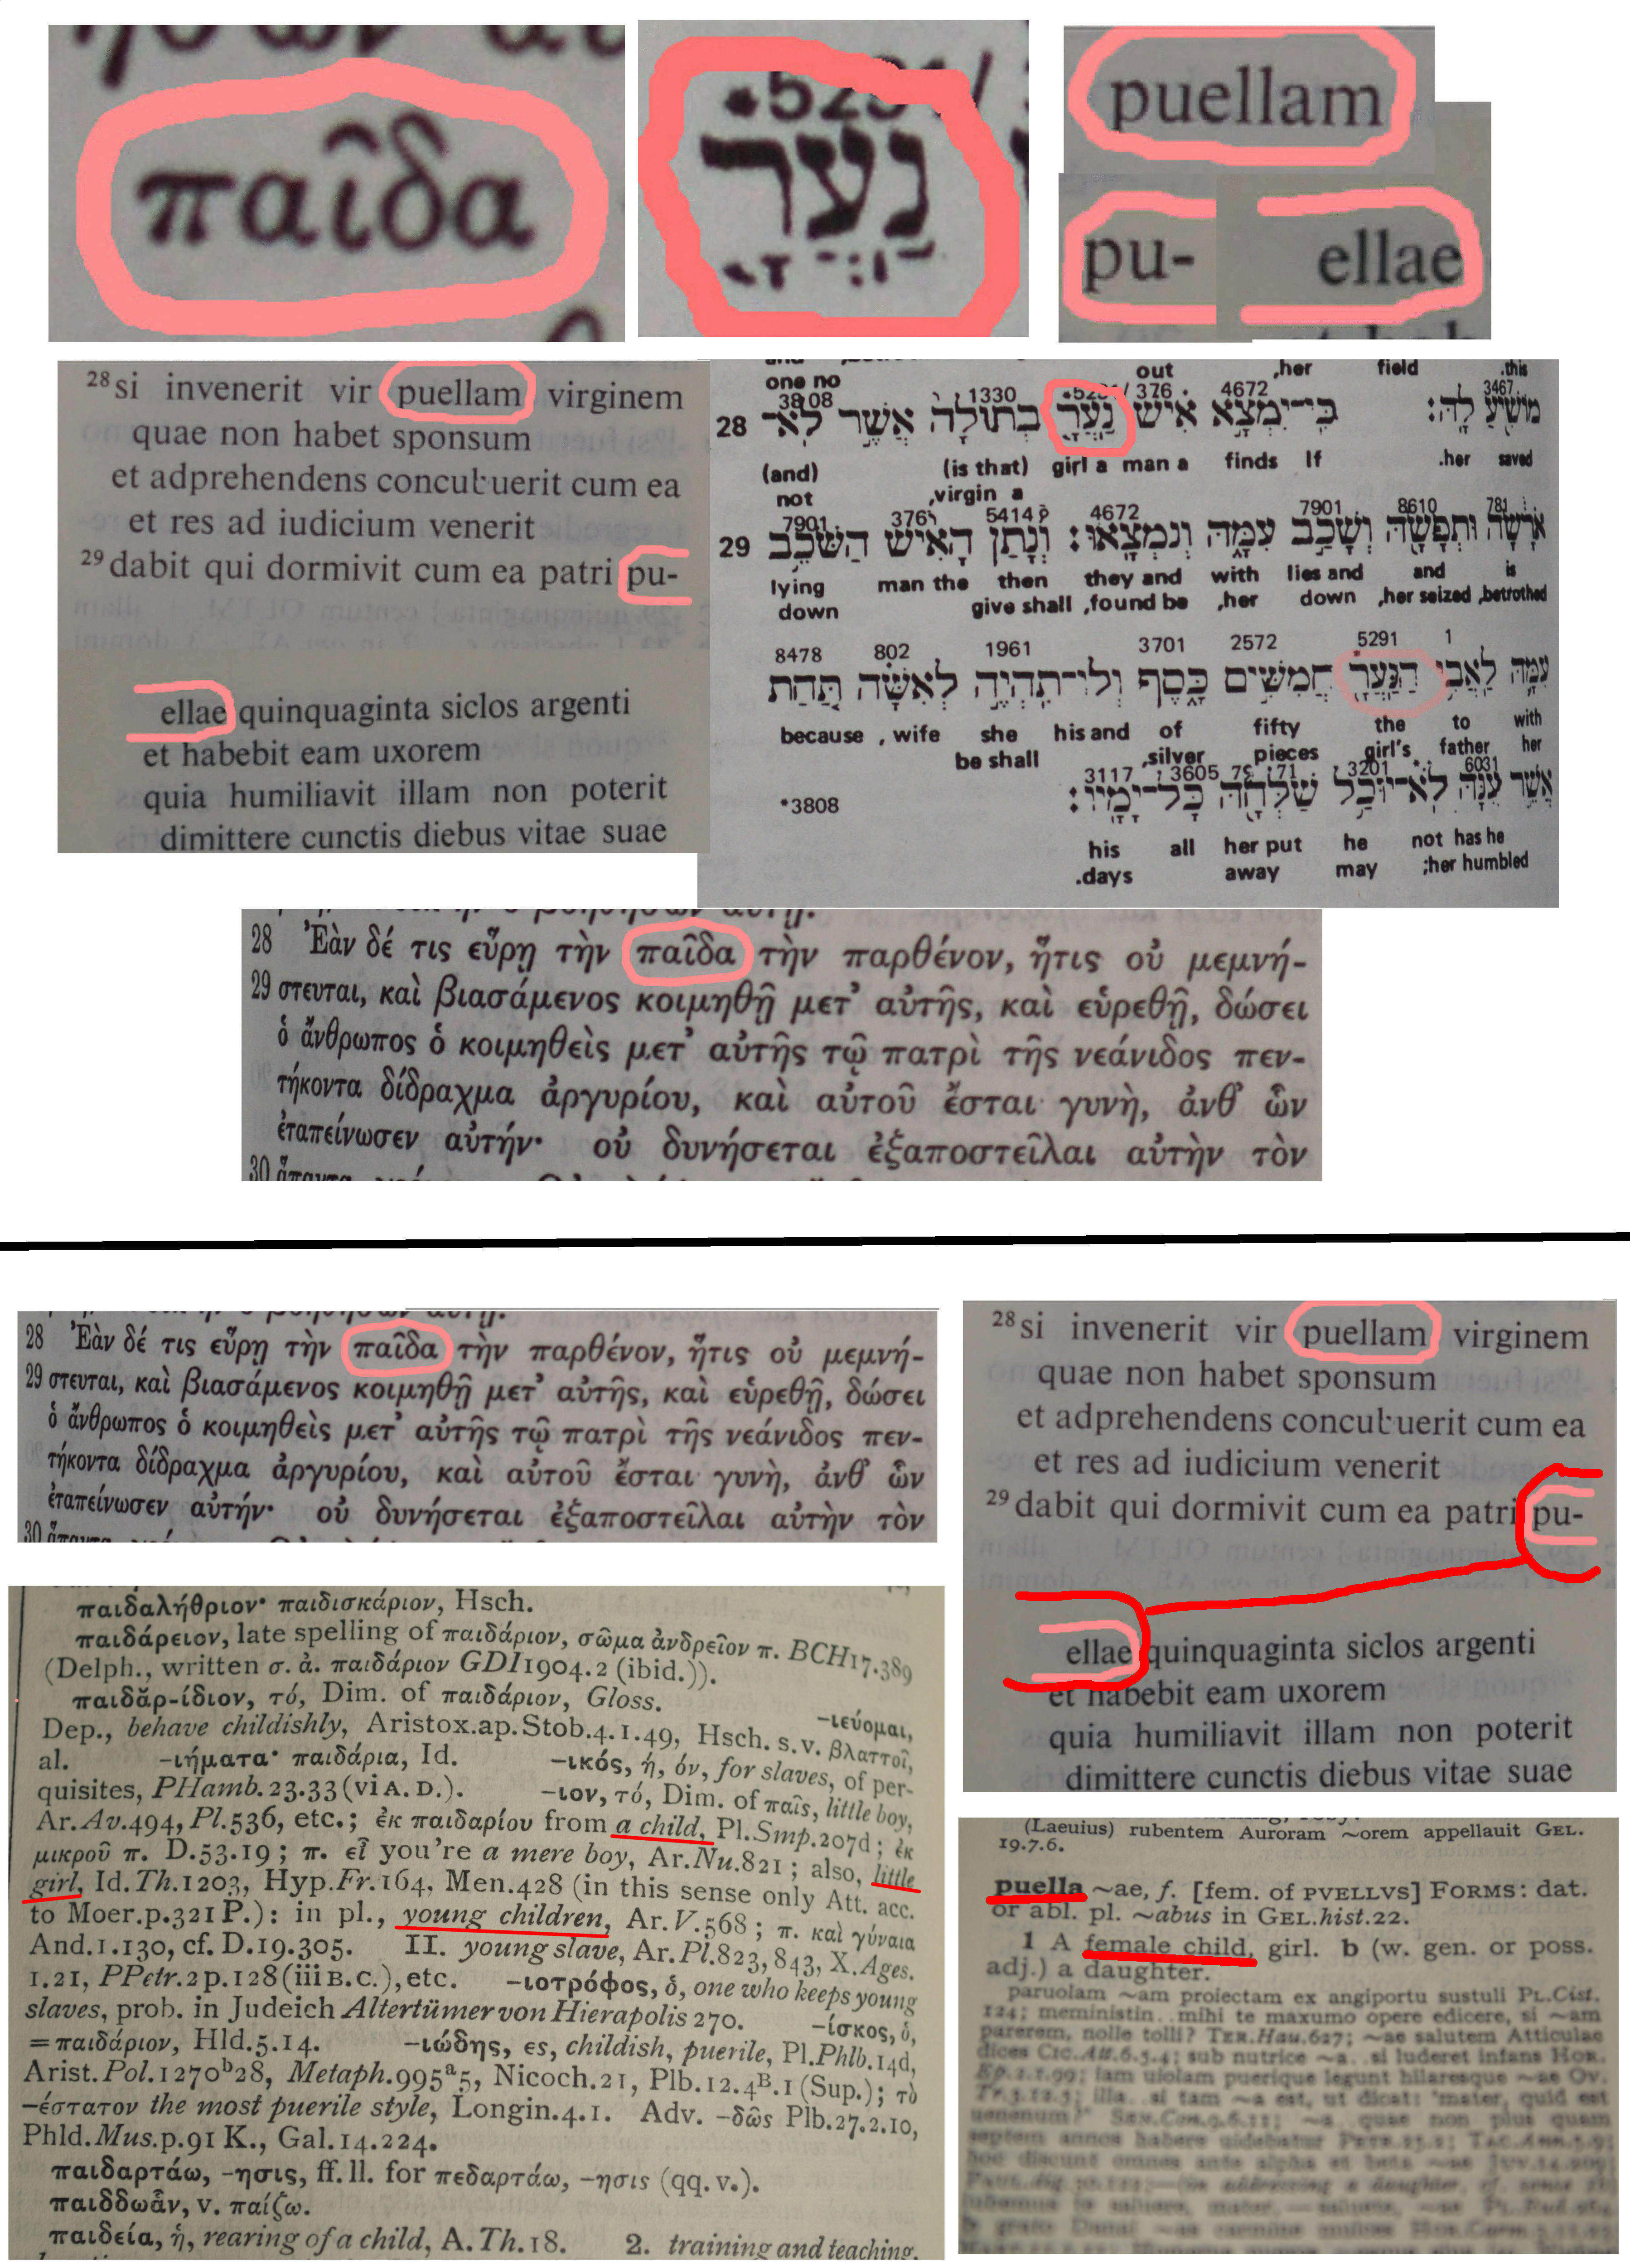 παῖδα
נַעֲרָ
puellam
pu-
ellae
28 si invenerit vir puellam virginem
quae non habet sponsum
et adprehendens concubuerit cum ea
et res ad iudicium venerit
29 dabit qui dormivit cum ea patri pu-
ellae quinquaginta siclos argenti
et habebit eam uxorem
quia humiliavit illam non poterit
dimittere cunctis diebus vitae suae
one no out ,her field .this
3808 1330 376 4672 3467
28 מוֹשִׁיעַ לָהּ׃ כִּי־יִמְצָא אִישׁ נַעֲרָ בְתוּלָה אֲשֶׁר לֹא־
(and) (is that) girl a man a finds If .her saved
not ,virgin a
7901 376 5414 4672 7901 8610 781
29 אֹרָשָׂה וּתְפָשָׂהּ וְשָׁכַב עִמָּהּ וְנִמְצָאוּ׃ וְנָתַן הָאִישׁ הַשֹּׁכֵב
lying man the then they and with lies and and is
down give shall ,found be ,her down ,her seized ,betrothed
8478 802 1961 3701 2572 5291 1
עִמָּהּ לַאֲבִי הַנַּעֲרָ חֲמִשִּׁים כָּסֶף וְלוֹ־תִהְיֶה לְאִשָּׁה תַּחַת
because , wife she his and of fifty the to with
be shall ,silver pieces girl's father her
3117 3605 71 3201 6031
*3808 אֲשֶׁר עִנָּהּ לֹא־יוּכַל שַׁלְּחָהּ כָּל־יָמָיו׃
his all her put he not has he
.days away may ;her humbled
28 Ἐὰν δέ τις εὕρῃ τὴν παῖδα τὴν παρθένον, ἥτις οὐ μεμνή-
29 στευται, καὶ βιασάμενος κοιμηθῇ μετ' αὐτῆς, καὶ εὑρεθῇ, δώσει
ὁ ἄνθρωπος ὁ κοιμηθεὶς μετ' αὐτῆς τῷ πατρὶ τῆς νεάνιδος πεν-
τήκοντα δίδραχμα ἀργυρίου, καὶ αὐτοῦ ἔσται γυνὴ, ἀνθ' ὧν
ἐταπείνωσεν αὐτήν· οὐ δυνήσεται ἐξαποστεῖλαι αὐτὴν τὸν
30
28 Ἐὰν δέ τις εὕρῃ τὴν παῖδα τὴν παρθένον, ἥτις οὐ μεμνή-
29 στευται, καὶ βιασάμενος κοιμηθῇ μετ' αὐτῆς, καὶ εὑρεθῇ, δώσει
ὁ ἄνθρωπος ὁ κοιμηθεὶς μετ' αὐτῆς τῷ πατρὶ τῆς νεάνιδος πεν-
τήκοντα δίδραχμα ἀργυρίου, καὶ αὐτοῦ ἔσται γυνὴ, ἀνθ' ὧν
ἐταπείνωσεν αὐτήν· οὐ δυνήσεται ἐξαποστεῖλαι αὐτὴν τὸν
30
28 si invenerit vir puellam virginem
quae non habet sponsum
et adprehendens concubuerit cum ea
et res ad iudicium venerit
29 dabit qui dormivit cum ea patri pu-
ellae quinquaginta siclos argenti
et habebit eam uxorem
quia humiliavit illam non poterit
dimittere cunctis diebus vitae suae
παιδαλήθριον· παιδισκάριον, Hsch.
παιδάρειον, late spelling of παιδάριον, σῶμα ἀνδρεῖον π. BCH17.389
(Delph., written σ. ἀ. παιδάριον GDI1904.2 (ibid.)).
παιδᾰρ-ίδιον, τό, Dim. of παιδάριον, Gloss. -ιεύομαι,
Dep., behave childishly, Aristox.ap.Stob.4.1.49, Hsch. s.v. βλαττοῖ,
al. -ιήματα· παιδάρια, Id. -ικός, ή, όν, for slaves, of per-
quisites, PHamb.23.33 (vi A.D.). -ιον, τό, Dim. of παῖς, little boy,
Ar.Av.494, Pl.536, etc.; ἐκ παιδαρίου from a child, Pl.Smp.207d; ἐκ
μικροῦ π. D.53.19; π. εἶ you're a mere boy, Ar.Nu.821; also, little
girl, Id.Th.1203, Hyp.Fr.164, Men.428 (in this sense only Att. acc.
to Moer.p.321 P.): in pl., young children, Ar.V.568; π. καὶ γύναια
And.1.130, cf. D.19.305. II. young slave, Ar.Pl.823, 843, X.Ages.
1.21, PPetr.2p.128 (iii B.C.), etc. -ιοτρόφος, ὁ, one who keeps young
slaves, prob. in Judeich Altertümer von Hierapolis 270. -ίσκος, ὁ,
=παιδάριον, Hld.5.14. -ιώδης, ες, childish, puerile, Pl.Phlb.14d,
Arist.Pol.1270b28, Metaph.995a5, Nicoch.21, Plb.12.4B.1 (Sup.); τὸ
-έστατον the most puerile style, Longin.4.1. Adv. -δῶς Plb.27.2.10,
Phld.Mus.p.91 K., Gal.14.224.
παιδαρτάω, -ησις, ff. ll. for πεδαρτάω, -ησις (qq. v.).
παιδδωἇν, v. παίζω.
παιδεία, ἡ, rearing of a child, A.Th.18. 2. training and teaching,
(Laeuius) rubentem Auroram ~orem appellauit GEL.
19.7.6.
puella ~ae, f. [fem. of PVELLVS] FORMS: dat.
or abl. pl. ~abus in GEL.hist.22.
1 A female child, girl. b (w. gen. or poss.
adj.) a daughter.
paruolam ~am proiectam ex angiportu sustuli PL.Cist.
124; meministin.. mihi te maxumo opere edicere, si ~am
parerem, nolle tolli? TER.Hau.627; ~ae salutem Atticulae
dices CIC.Att.6.5.4; sub nutrice ~a.. si luderet infans HOR.
Ep.2.1.99; iam uiolam puerique legunt hilaresque ~ae OV.
Tr.3.12.5; illa.. si tam ~a est, ut dicat: 'mater, quid est
uenenum?' SEN.Con.9.6.11; ~a quae non plus quam
septem annos habere uidebatur PETR.25.2; TAC.Ann.5.9;
hoc discunt omnes ante alpha et beta ~ae JUV.14.209;